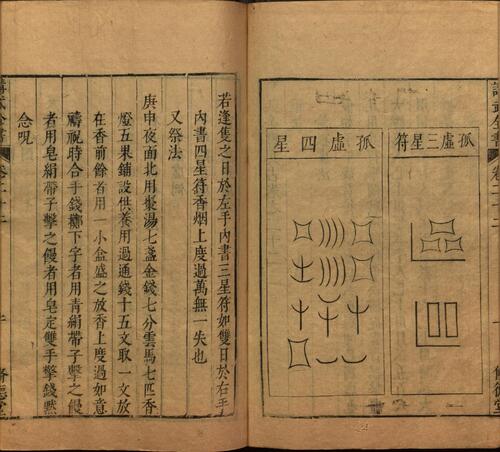 孤虛三星符
孤虛四星
若逢隻之日於左手內書三星符如雙日於右手
內書四星符香烟上度過萬無一失也
又祭法
庚申夜面北用棗湯七盞金錢七分雲馬七匹香
燈五果鋪設供養用過通錢十五文取一文放
在香前餘者用一小盆盛之放香上度過如意
禱祝時合手錢擲下字者用青絹帶子擊之饅
者用皂絹帶子擊之饅者用皂定雙手擎錢默
念呪